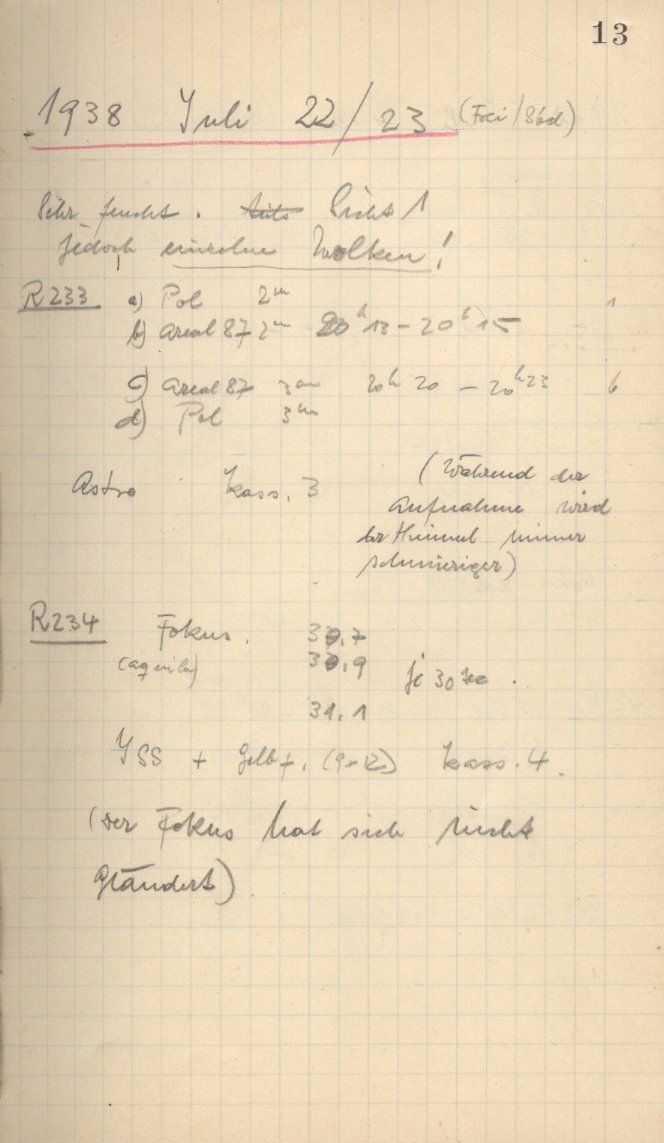 13
1938 Juli 22/23 (Foci/Sbd)
Sehr feucht. Sicht 1
jedoch einzelne Wolken!
R233 a) Pol 2m
b) Areal 87 2m 20h 13 - 20h 15 1
c) Areal 87 3m 20h 20 - 20h 23 6
d) Pol 3m
Astro Kass. 3 (Während der
Aufnahme wird
der Himmel immer
schmieriger)
R234 Fokus. 30,7
(aquila) 30,9 je 30 sec.
31.1
ISS + Gelbf. Kass. 4.
(Der Fokus hat sich nicht
geändert)